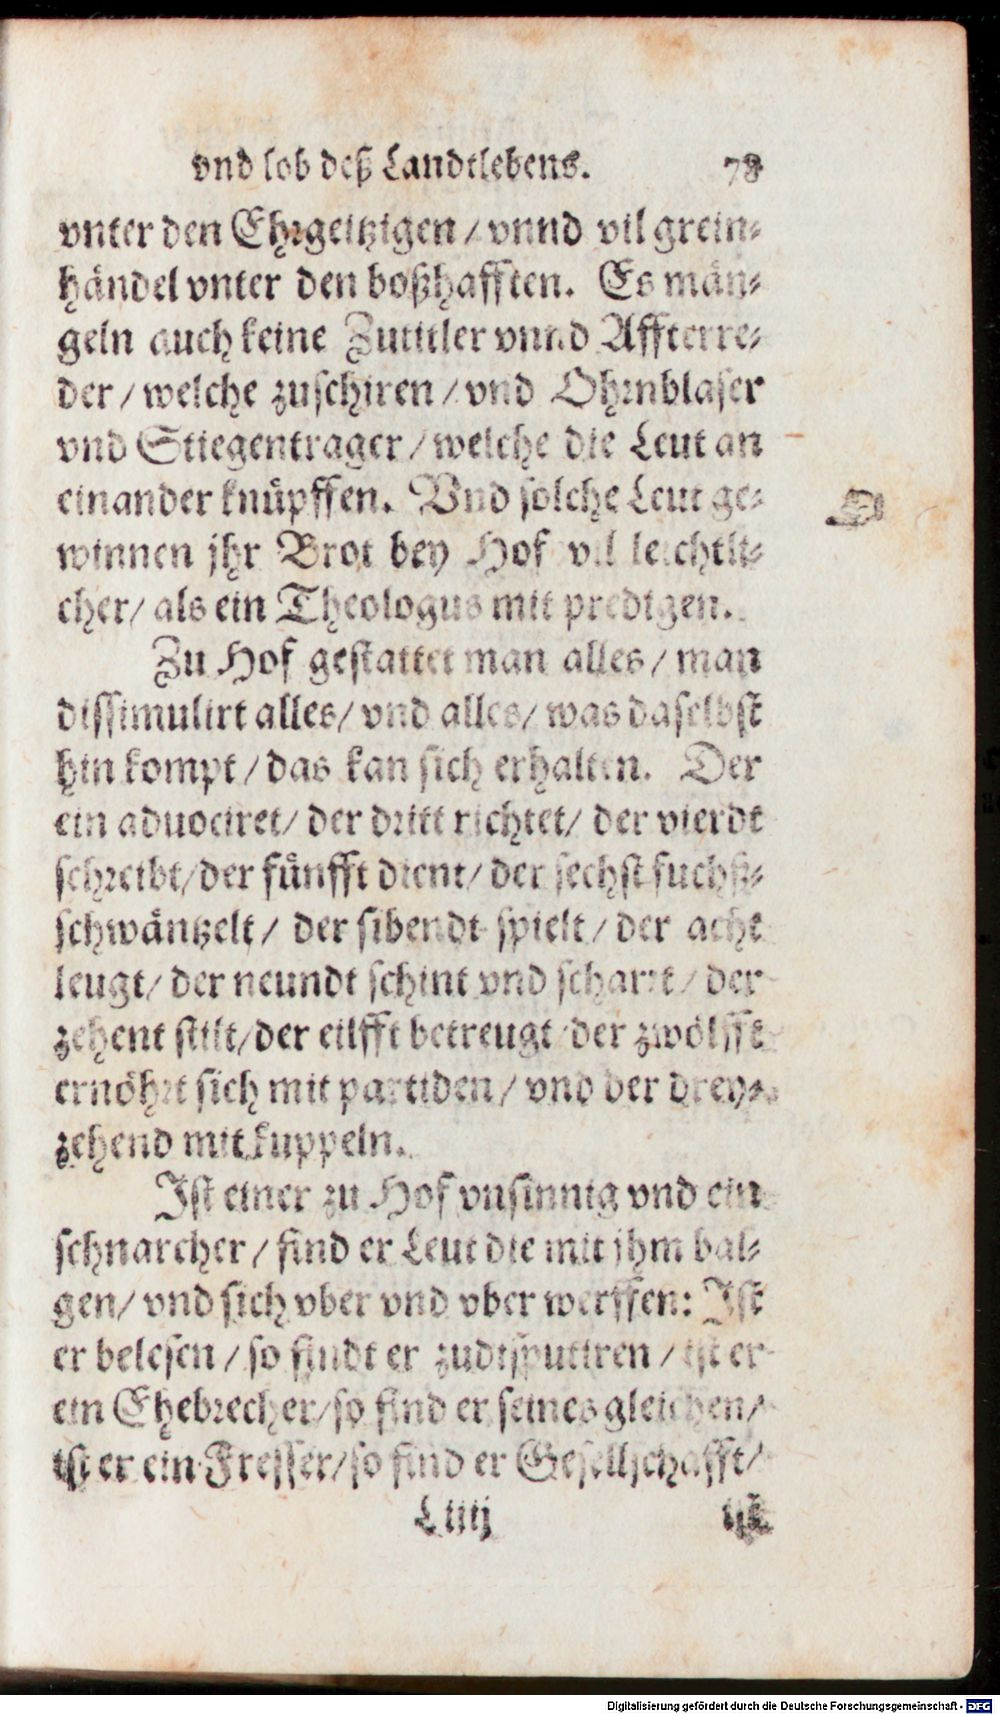 vnd lob deß Landtlebens. 78
vnter den Ehrgeitzigen / vnnd vil grein-
händel vnter den boßhafften. Es män-
geln auch keine Zutitler vnnd Affterre-
der / welche zuschiren / vnd Ohrnblaser
vnd Stiegentrager / welche die Leut an
einander knüpffen. Vnd solche Leut ge-
winnen jhr Brot bey Hof vil leichtli-
cher / als ein Theologus mit predigen.
Zu Hof gestattet man alles / man
dissimulirt alles / vnd alles / was daselbst
hin kompt / das kan sich erhalten. Der
ein aduociret / der dritt richtet / der vierdt
schreibt / der fünfft dient / der sechst fuchß-
schwäntzelt / der sibendt spielt / der acht
leugt / der neundt schint vnd scharrt / der
zehent stilt / der eilfft betreugt / der zwölfft
ernöhrt sich mit partiden / vnd der drey-
zehend mit kuppeln.
Ist einer zu Hof vnsinnig vnd ein
schnarcher / find er Leut die mit jhm bal-
gen / vnd sich vber vnd vber werffen: Ist
er belesen / so findt er zudisputiren / ist er
ein Ehebrecher / so find er seines gleichen /
ist er ein Fresser / so find er Gesellschafft /
L iiij ist
Digitalisierung gefördert durch die Deutsche Forschungsgemeinschaft - DFG